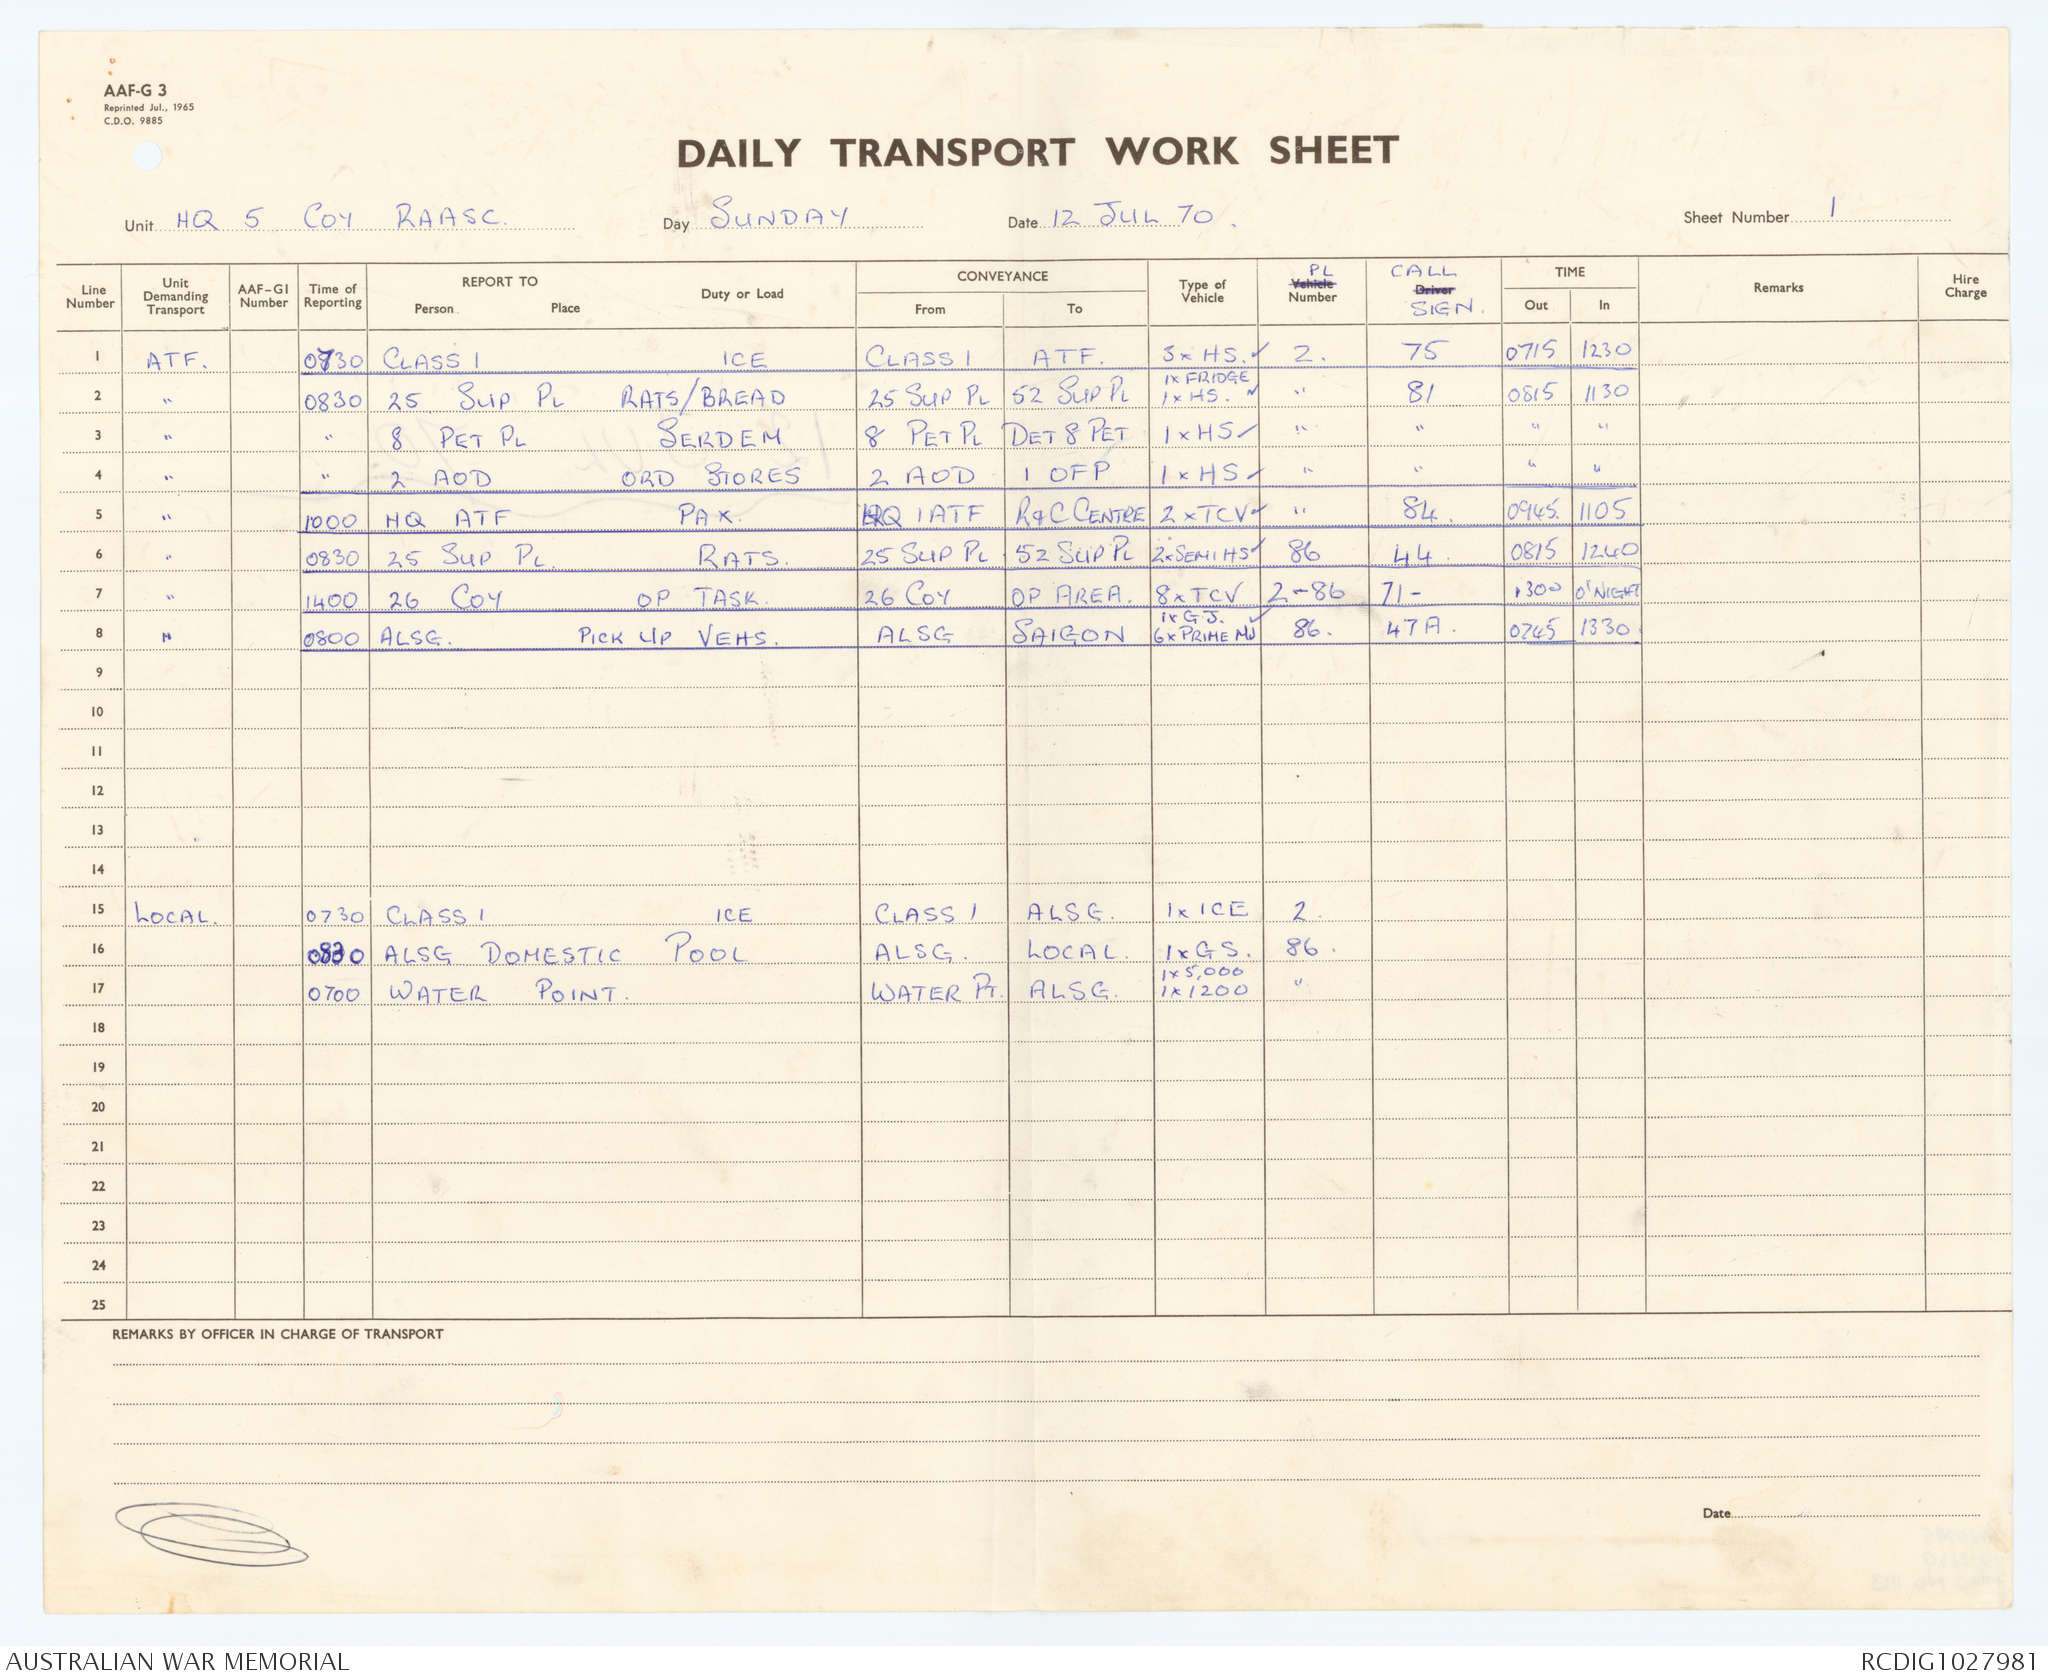 AAF-G 3
Reprinted Jul., 1965
C.D.O. 9885
DAILY TRANSPORT WORK SHEET
Unit HQ 5 COY RAASC. Day SUNDAY Date 12 JUL 70. Sheet Number 1
Line Number Unit Demanding Transport AAF-G1 Number Time of Reporting REPORT TO Person Place Duty or Load CONVEYANCE From To Type of Vehicle Vehicle PL Number Driver CALL SIGN. TIME Out In Remarks Hire Charge
1 ATF. 0730 CLASS 1 ICE CLASS 1 ATF. 3 x HS. ✓ 2. 75 0715 1230
2 " 0830 25 SUP PL RATS/BREAD 25 SUP PL 52 SUP PL 1x FRIDGE 1x HS. ✓ " 81 0815 1130
3 " " 8 PET PL SERDEM 8 PET PL DET 8 PET 1 x HS ✓ " " " "
4 " " 2 AOD ORD STORES 2 AOD 1 OFP 1 x HS ✓ " " " "
5 " 1000 HQ ATF PAX. HQ 1 ATF R&C CENTRE 2 x TCV ✓ " 84. 0945. 1105
6 " 0830 25 SUP PL. RATS. 25 SUP PL 52 SUP PL 2x SEMI HS ✓ 86 44. 0815 1240
7 " 1400 26 COY OP TASK. 26 COY OP AREA. 8 x TCV 2-86 71- 1300 O'NIGHT
8 " 0800 ALSG. PICK UP VEHS. ALSG SAIGON 1x G.J. ✓ 6x PRIME MV 86. 47A. 0745 1330
9
10
11
12
13
14
15 LOCAL. 0730 CLASS 1 ICE CLASS 1 ALSG. 1 x ICE 2.
16 0830 ALSG DOMESTIC POOL ALSG. LOCAL. 1x GS. 86.
17 0700 WATER POINT. WATER PT. ALSG. 1x 5,000 1x 1200 "
18
19
20
21
22
23
24
25
REMARKS BY OFFICER IN CHARGE OF TRANSPORT
Date
AUSTRALIAN WAR MEMORIAL RCDIG1027981